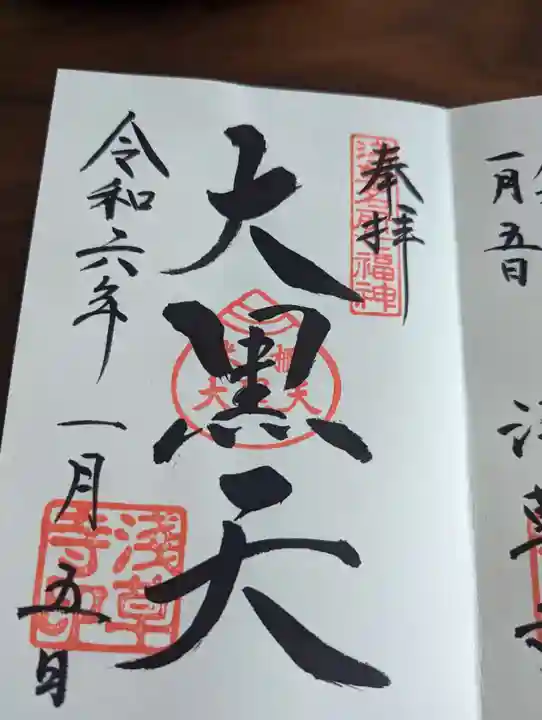 奉拝
大黒天
令和六年
一月五日
浅草名所七福神
米櫃
大黒天
淺草
寺印
一月五日
浅草寺